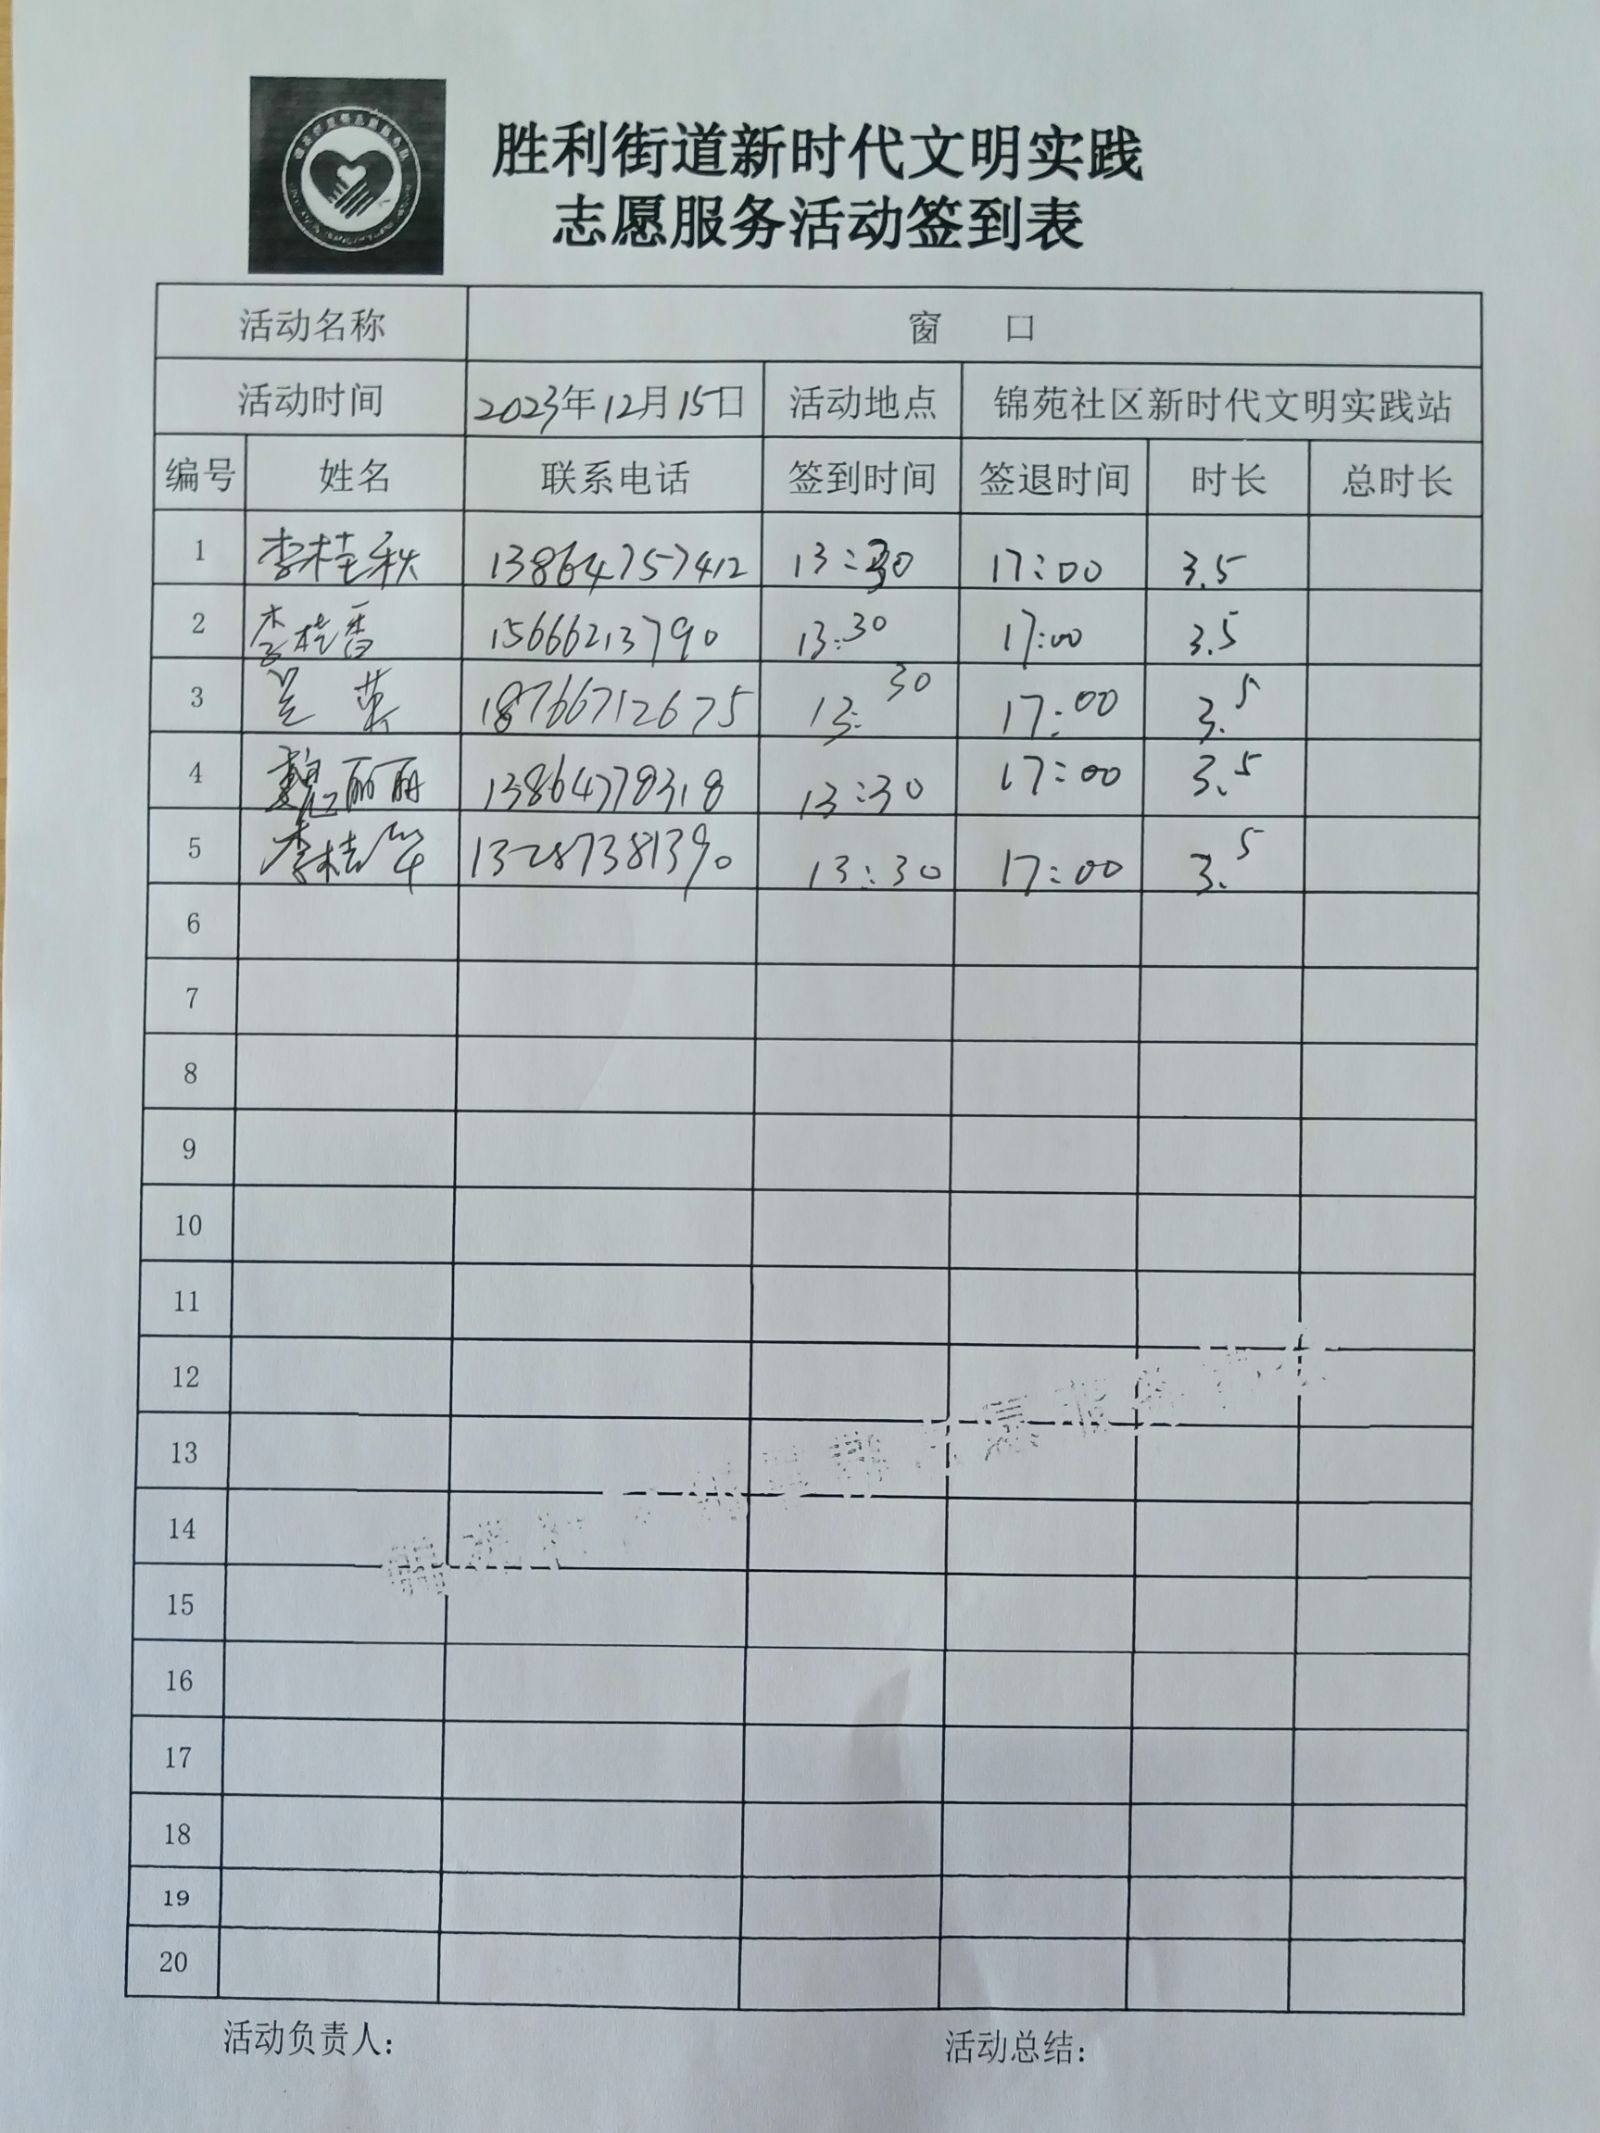 胜利街道新时代文明实践
志愿服务活动签到表
活动名称 窗 口
活动时间 2023年12月15日 活动地点 锦苑社区新时代文明实践站
编号 姓名 联系电话 签到时间 签退时间 时长 总时长
1 李桂秋 13864757412 13:30 17:00 3.5
2 李桂香 15666213790 13:30 17:00 3.5
3 兰英 18766712675 13:30 17:00 3.5
4 魏丽丽 13864778318 13:30 17:00 3.5
5 李桂华 13287381390 13:30 17:00 3.5
6
7
8
9
10
11
12
13
14
15
16
17
18
19
20
活动负责人: 活动总结: